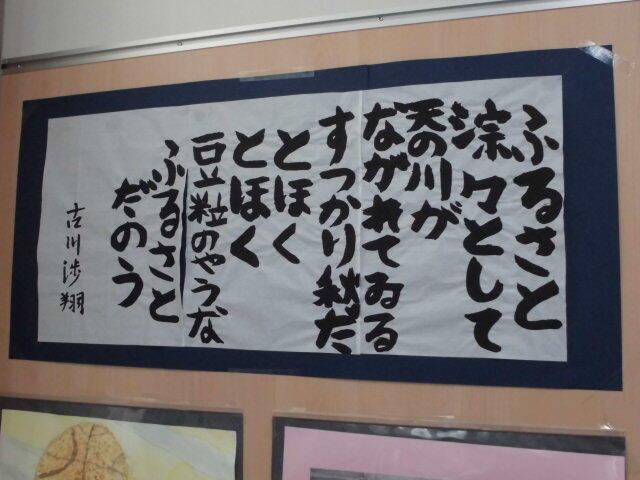 ふるさと
淙々として
天の川が
ながれてゐる
すつかり秋だ、
とほく
とほく
豆粒のやうな
ふるさと
だのう
古川渉翔